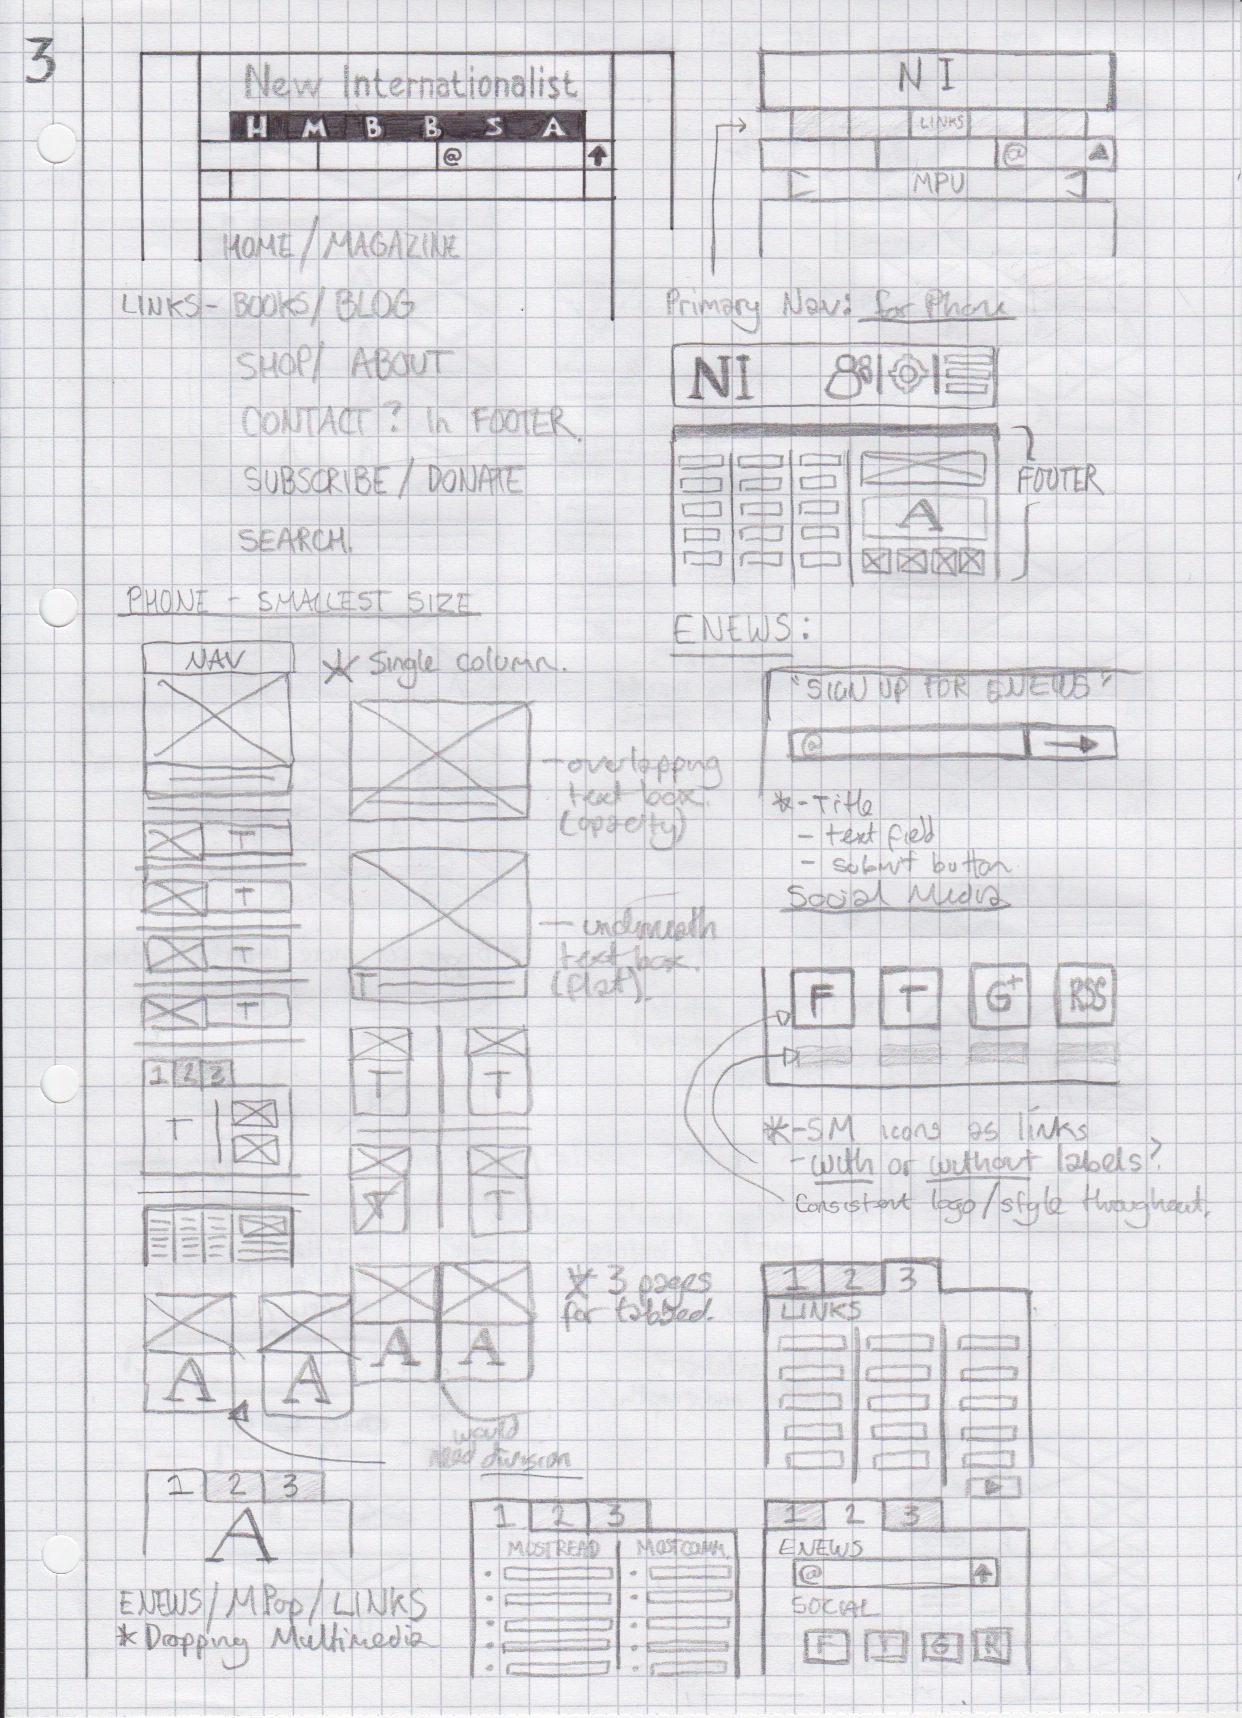 3
New Internationalist
H M B B S A
@
HOME/MAGAZINE
LINKS - BOOKS/BLOG
SHOP/ ABOUT
CONTACT? in FOOTER.
SUBSCRIBE/DONATE
SEARCH.
NI
LINKS
@
MPU
Primary Nav: for Phone
NI
FOOTER
A
PHONE - SMALLEST SIZE
NAV
* Single column.
T
T
T
T
- overlapping
text box.
(opacity)
- underneath
text box.
(flat).
T
1 2 3
T
T T
T T
A A A A
* 3 pages
for tabbed.
would
need division
1 2 3
A
ENEWS/MPop/LINKS
* Dropping Multimedia
ENEWS:
"SIGN UP FOR ENEWS"
@
* - Title
- text field
- submit button
Social Media
F T G+ RSS
* - SM icons as links
- with or without labels?
Consistent logo/style throughout.
1 2 3
LINKS
1 2 3
MOST READ MOST COMM.
1 2 3
ENEWS
@
SOCIAL
F T G R